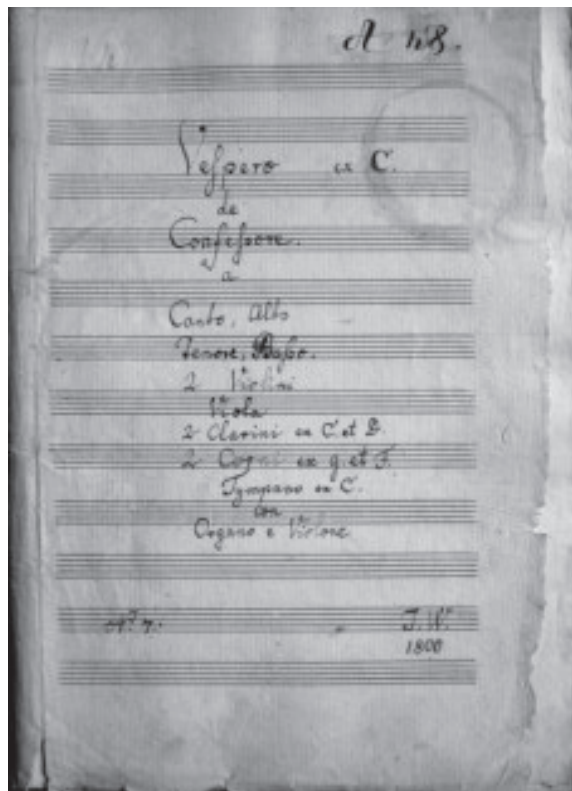 A 48.
Vespero ex C.
de
Confessore.
a
Canto, Alto
Tenore, Basso.
2 Violini
Viola
2 Clarini ex C. et D.
2 Corni ex g. et F.
Tympano ex C.
con
Organo e Violone
Nro 7.
J. W.
1800